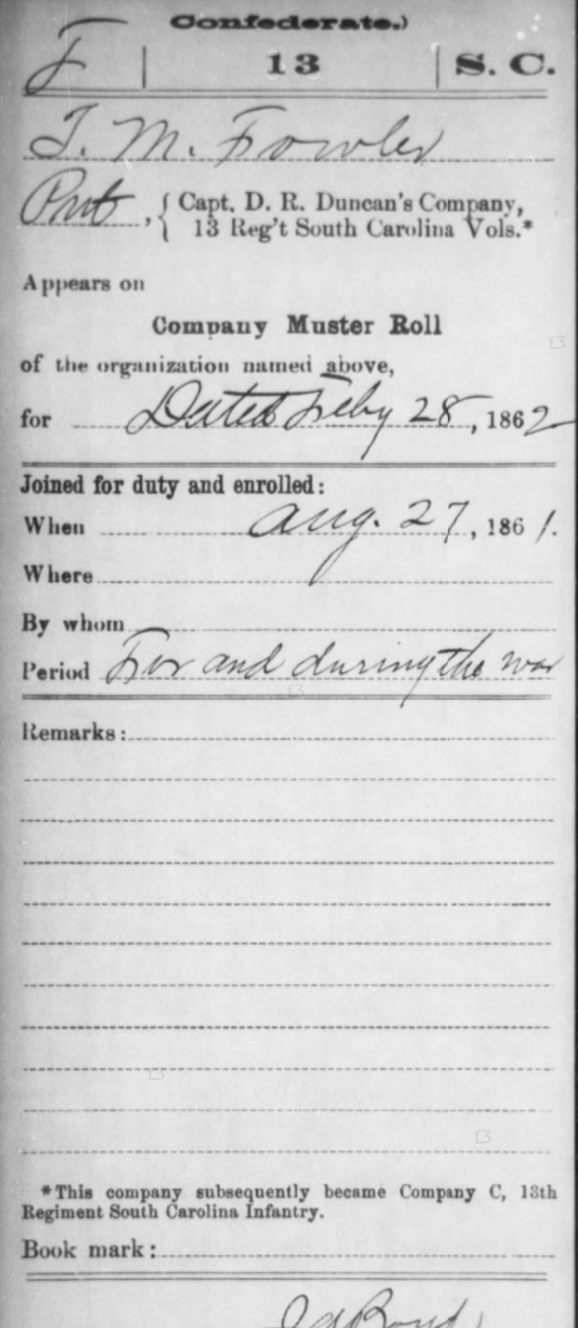 Confederate.)
F | 13 | S. C.
T. M. Fowler
Pvt, { Capt. D. R. Duncan's Company,
13 Reg't South Carolina Vols.*
Appears on
Company Muster Roll
of the organization named above,
for Dated Feby 28, 1862
Joined for duty and enrolled:
When Aug. 27, 1861.
Where
By whom
Period For and during the war
Remarks:
*This company subsequently became Company C, 13th
Regiment South Carolina Infantry.
Book mark: